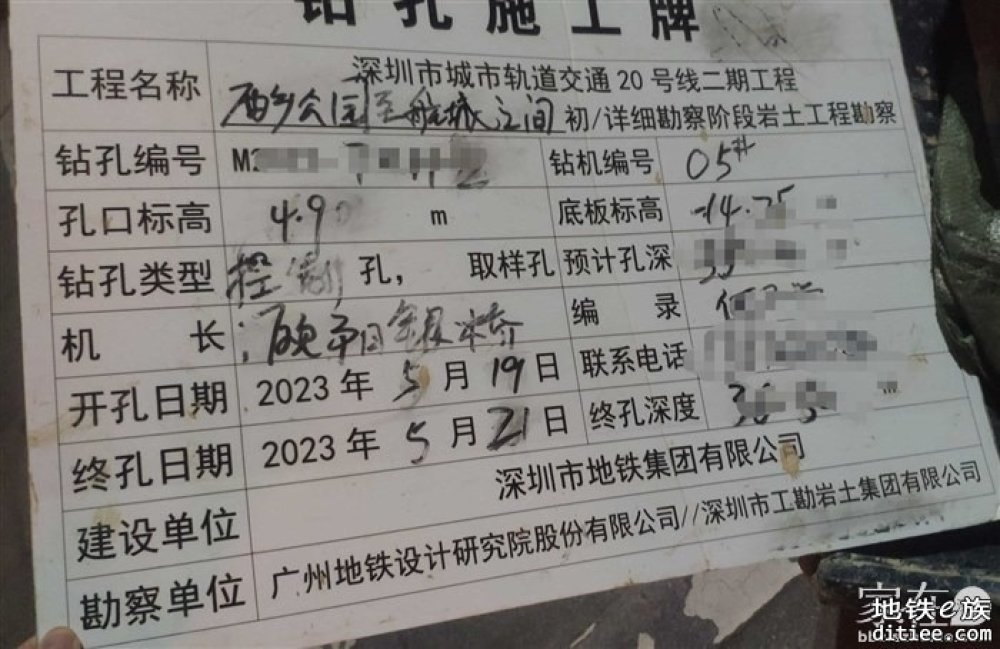 钻孔施工牌
工程名称 深圳市城市轨道交通20号线二期工程
西乡公园至航城之间 初/详细勘察阶段岩土工程勘察
钻孔编号 钻机编号 05#
孔口标高 4.9 m 底板标高
钻孔类型 控制孔, 取样孔 预计孔深
机 长 编 录
联系电话
开孔日期 2023年5月19日
终孔深度
终孔日期 2023年5月21日
建设单位 深圳市地铁集团有限公司
勘察单位 广州地铁设计研究院股份有限公司//深圳市工勘岩土集团有限公司
地铁e族
ditiee.com